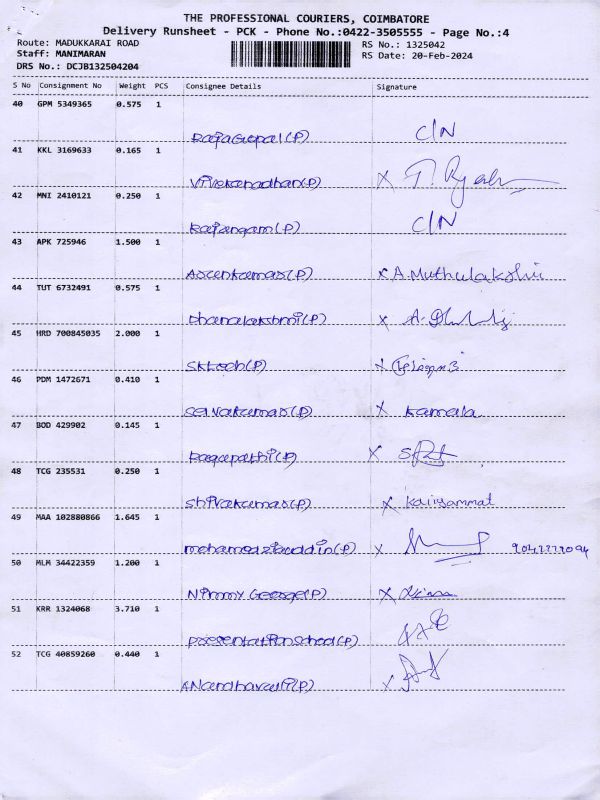 THE PROFESSIONAL COURIERS, COIMBATORE
Delivery Runsheet - PCK - Phone No.:0422-3505555 - Page No.:4
Route: MADUKKARAI ROAD RS No.: 1325042
Staff: MANIMARAN RS Date: 20-Feb-2024
DRS No.: DCJB132504204
S No Consignment No Weight PCS Consignee Details Signature
40 GPM 5349365 0.575 1
RajaGopal(P) C/N
41 KKL 3169633 0.165 1
Vivekanadhan(P) X
42 MNI 2410121 0.250 1
Rajangam(P) C/N
43 APK 725946 1.500 1
Aseenkumar(P) X A.Muthulakshmi
44 TUT 6732491 0.575 1
Dhanalakshmi(P) X
45 HRD 700845035 2.000 1
SKtech(P) X
46 PDM 1472671 0.410 1
Selvakumar(P) X Kamala
47 BOD 429902 0.145 1
Ragupathi(P) X
48 TCG 235531 0.250 1
Shivakumar(P) X Kaliyammal
49 MAA 102880866 1.645 1
(P) X
50 MLM 34422359 1.200 1
Nimmy George(P) X
51 KRR 1324068 3.710 1
Presentation School(P)
52 TCG 40859260 0.440 1
(P) X